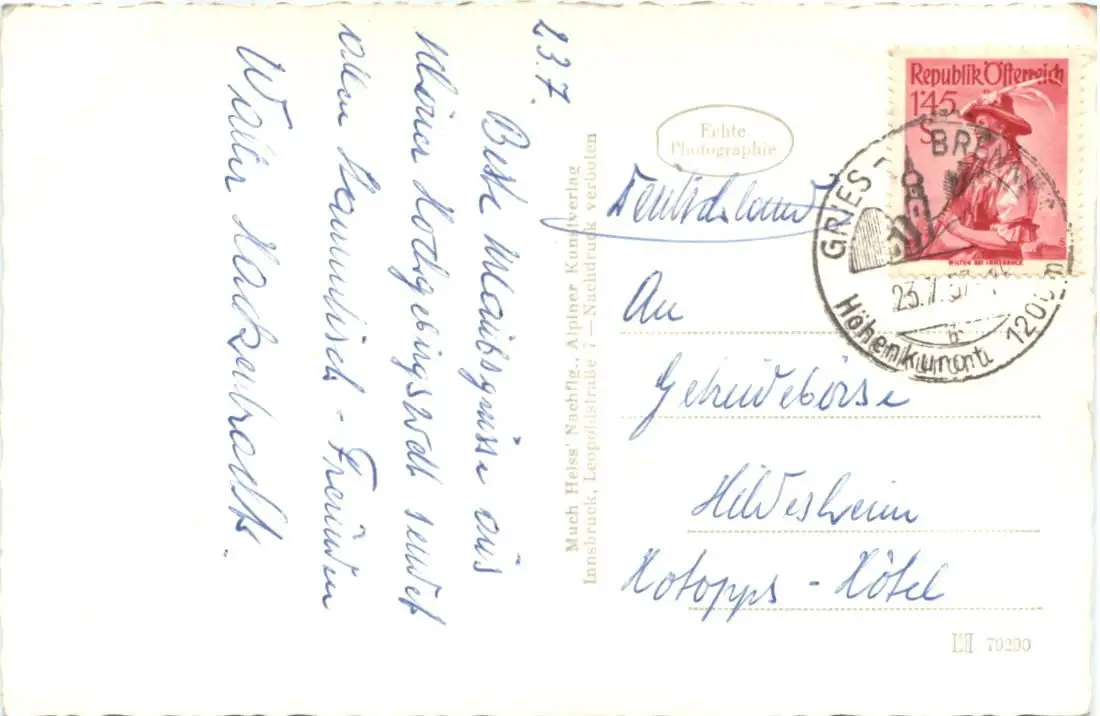 23.7.
Beste Urlaubsgrüsse aus
Hochgebirgswelt sendet
allen Stammtisch - Freunden
Walter
Much Heiss' Nachflg., Alpiner Kunstverlag
Innsbruck, Leopoldstraße 7 — Nachdruck verboten
Echte
Photographie
Republik Österreich
1'45
S
WILTEN BEI INNSBRUCK
GRIES BRENNER
23.7.57
Höhenkurort 1200 m
Deutschland
An
Getreidebörse
Hildesheim
Hotopps - Hotel
70290